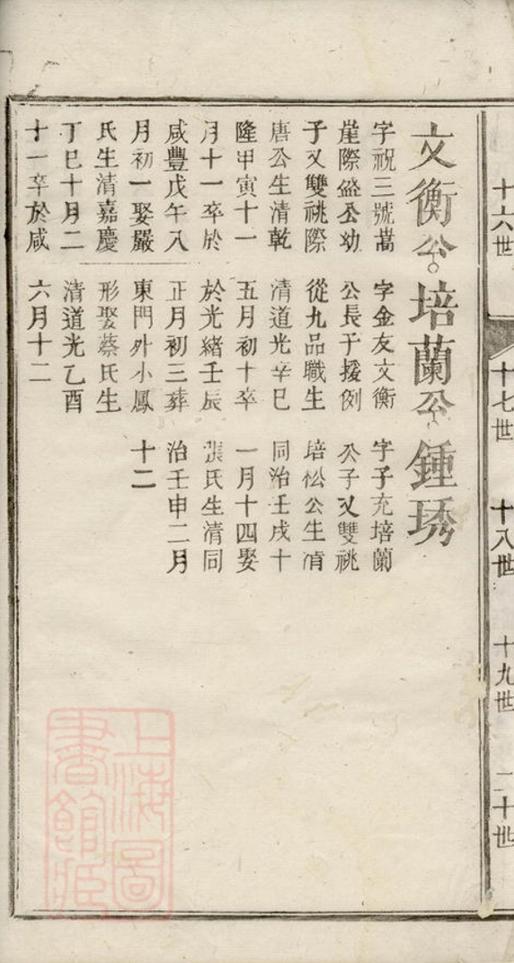 十六世
十七世
十八世
十九世
二十世
文衡公
字祝三號蒿
崖際盛公幼
子又雙祧際
唐公生清乾
隆甲寅十一
月十一卒於
咸豐戊午八
月初一娶嚴
氏生清嘉慶
丁巳十月二
十一卒於咸
培蘭公
字金友文衡
公長子援例
從九品職生
清道光辛巳
五月初十卒
於光緒壬辰
正月初三葬
東門外小鳳
形娶蔡氏生
清道光乙酉
六月十二
鍾琇
字子充培蘭
公子又雙祧
培松公生清
同治壬戌十
一月十四娶
張氏生清同
治壬申二月
十二
上海圖
書館